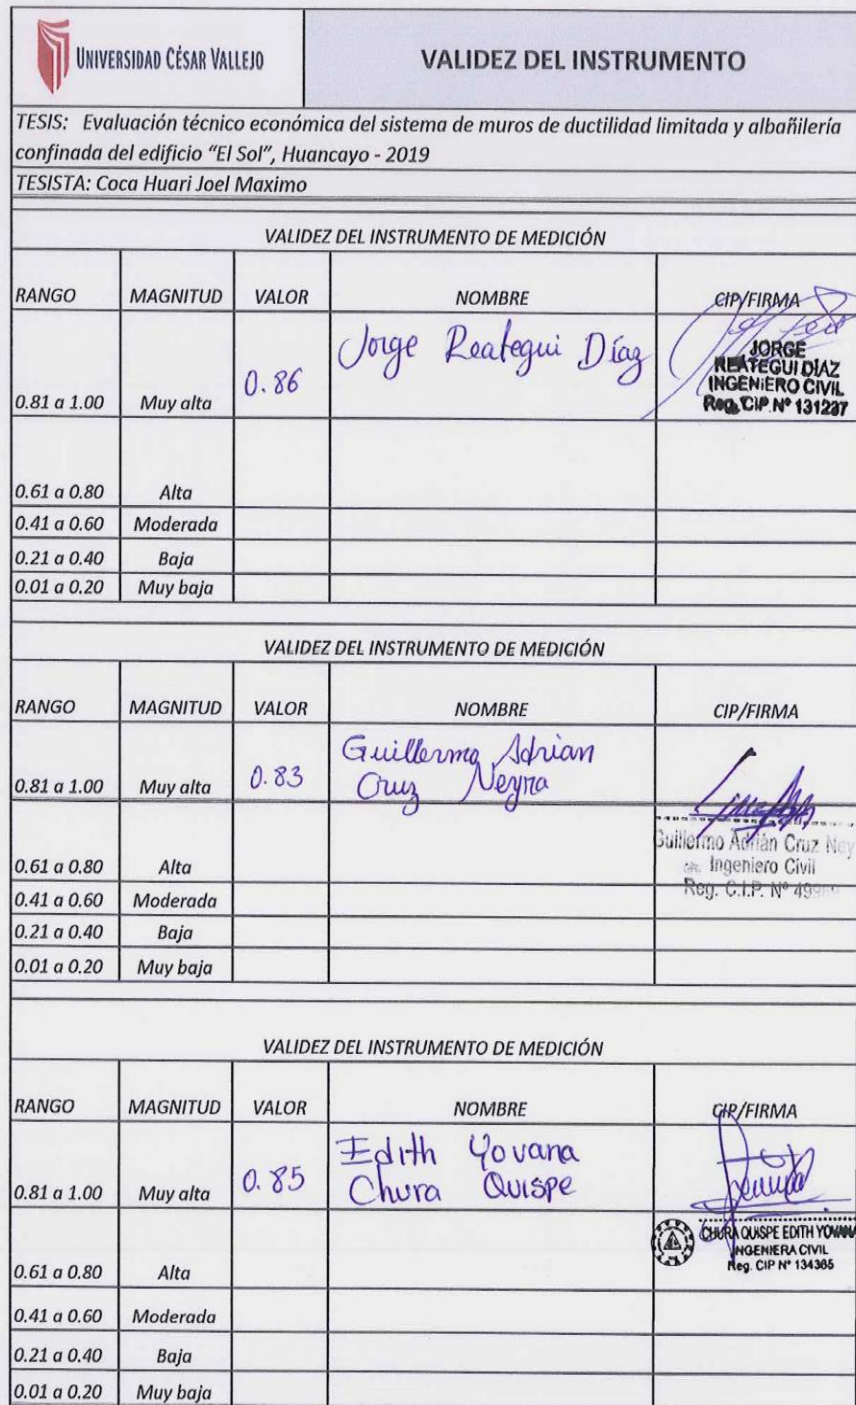 UNIVERSIDAD CÉSAR VALLEJO
VALIDEZ DEL INSTRUMENTO
TESIS: Evaluación técnico económica del sistema de muros de ductilidad limitada y albañilería
confinada del edificio “El Sol”, Huancayo - 2019
TESISTA: Coca Huari Joel Maximo
VALIDEZ DEL INSTRUMENTO DE MEDICIÓN
RANGO MAGNITUD VALOR NOMBRE CIP/FIRMA
0.81 a 1.00 Muy alta 0.86 Jorge Reategui Díaz
JORGE
REATEGUI DÍAZ
INGENIERO CIVIL
Reg. CIP. Nº 131237
0.61 a 0.80 Alta
0.41 a 0.60 Moderada
0.21 a 0.40 Baja
0.01 a 0.20 Muy baja
VALIDEZ DEL INSTRUMENTO DE MEDICIÓN
RANGO MAGNITUD VALOR NOMBRE CIP/FIRMA
0.81 a 1.00 Muy alta 0.83 Guillermo Adrian
Cruz Neyra
Guillermo Adrián Cruz Ney
Ingeniero Civil
Reg. C.I.P. Nº
0.61 a 0.80 Alta
0.41 a 0.60 Moderada
0.21 a 0.40 Baja
0.01 a 0.20 Muy baja
VALIDEZ DEL INSTRUMENTO DE MEDICIÓN
RANGO MAGNITUD VALOR NOMBRE CIP/FIRMA
0.81 a 1.00 Muy alta 0.85 Edith Yovana
Chura Quispe
CHURA QUISPE EDITH YOVANA
INGENIERA CIVIL
Reg. CIP Nº 134365
0.61 a 0.80 Alta
0.41 a 0.60 Moderada
0.21 a 0.40 Baja
0.01 a 0.20 Muy baja